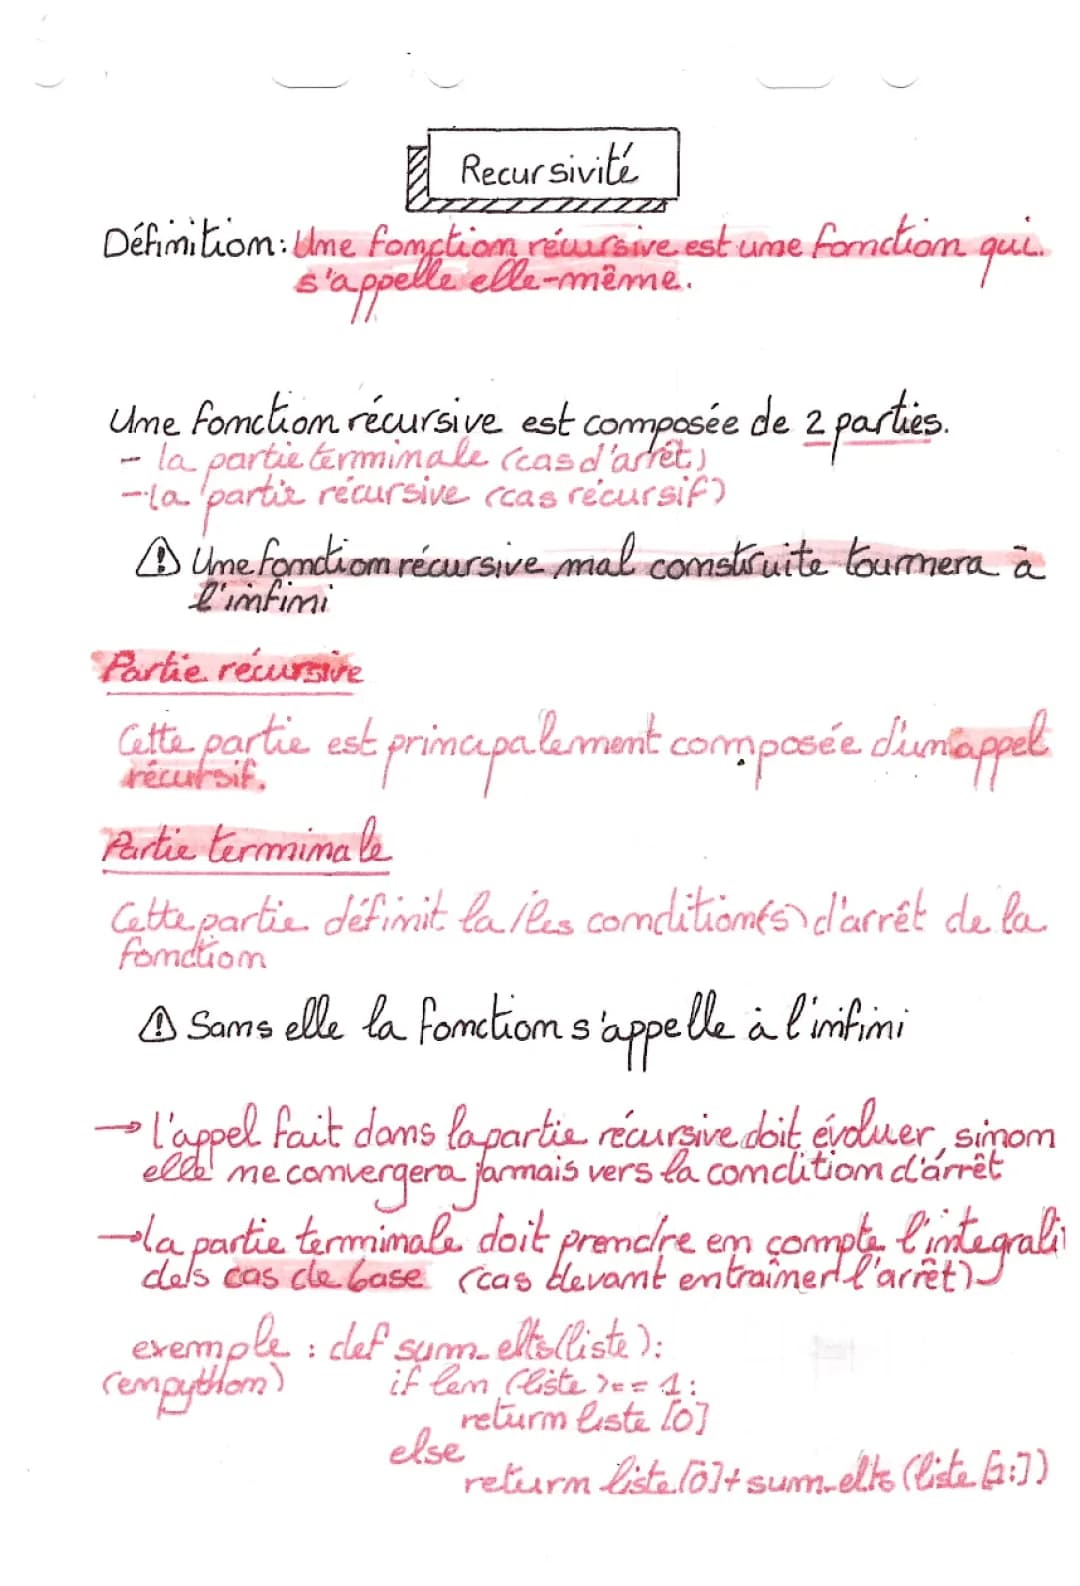 Recursivité
Définition: Une fonction récursive est une fonction qui
s'appelle elle-même.
Une fonction récursive est composée de 2 parties.
- la partie terminale (cas d'arrêt)
- la partie récursive (cas récursif)
⚠ Une fonction récursive mal construite tournera à
l'infini
Partie récursive
Cette partie est principalement composée d'un appel
récursif.
Partie terminale
Cette partie définit la/les condition(s) d'arrêt de la
fonction
⚠ Sans elle la fonction s'appelle à l'infini
→ l'appel fait dans la partie récursive doit évoluer, sinon
elle ne convergera jamais vers la condition d'arrêt
→ la partie terminale doit prendre en compte l'integrali
des cas de base (cas devant entraîner l'arrêt)
exemple : def sum_elts(liste):
(en python) if len (liste) == 1:
return liste [0]
else
return liste[0] + sum_elts (liste [1:])